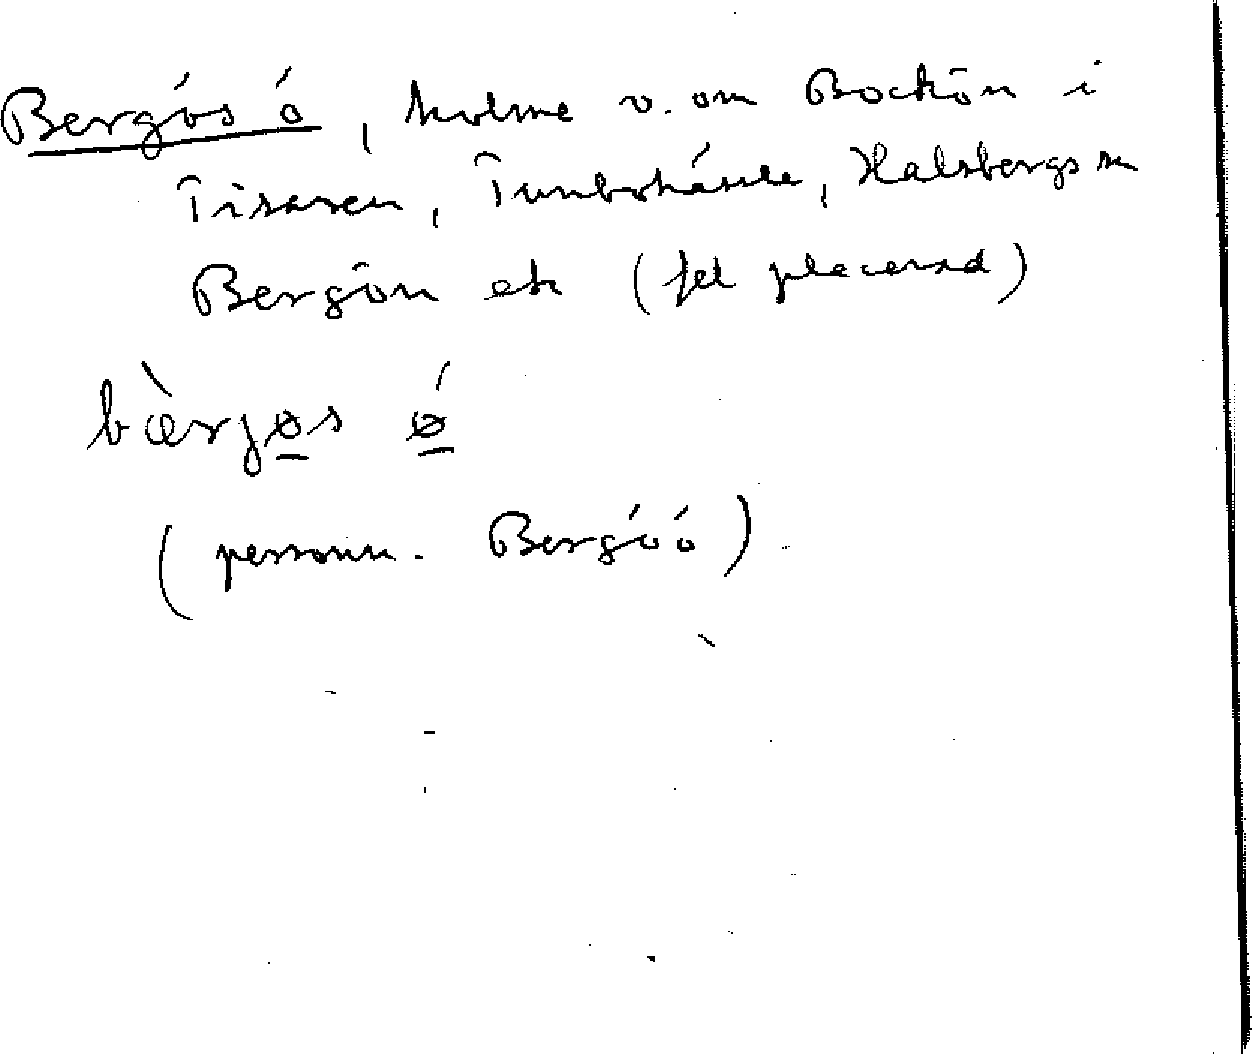 Bergös ö, holme v. om Bockön i
Tisaren, Tunbohåsele, Halsbergs sn
Bergön ek (fel placerad)
bàrjøs ǿ
(personn. Bergöö)